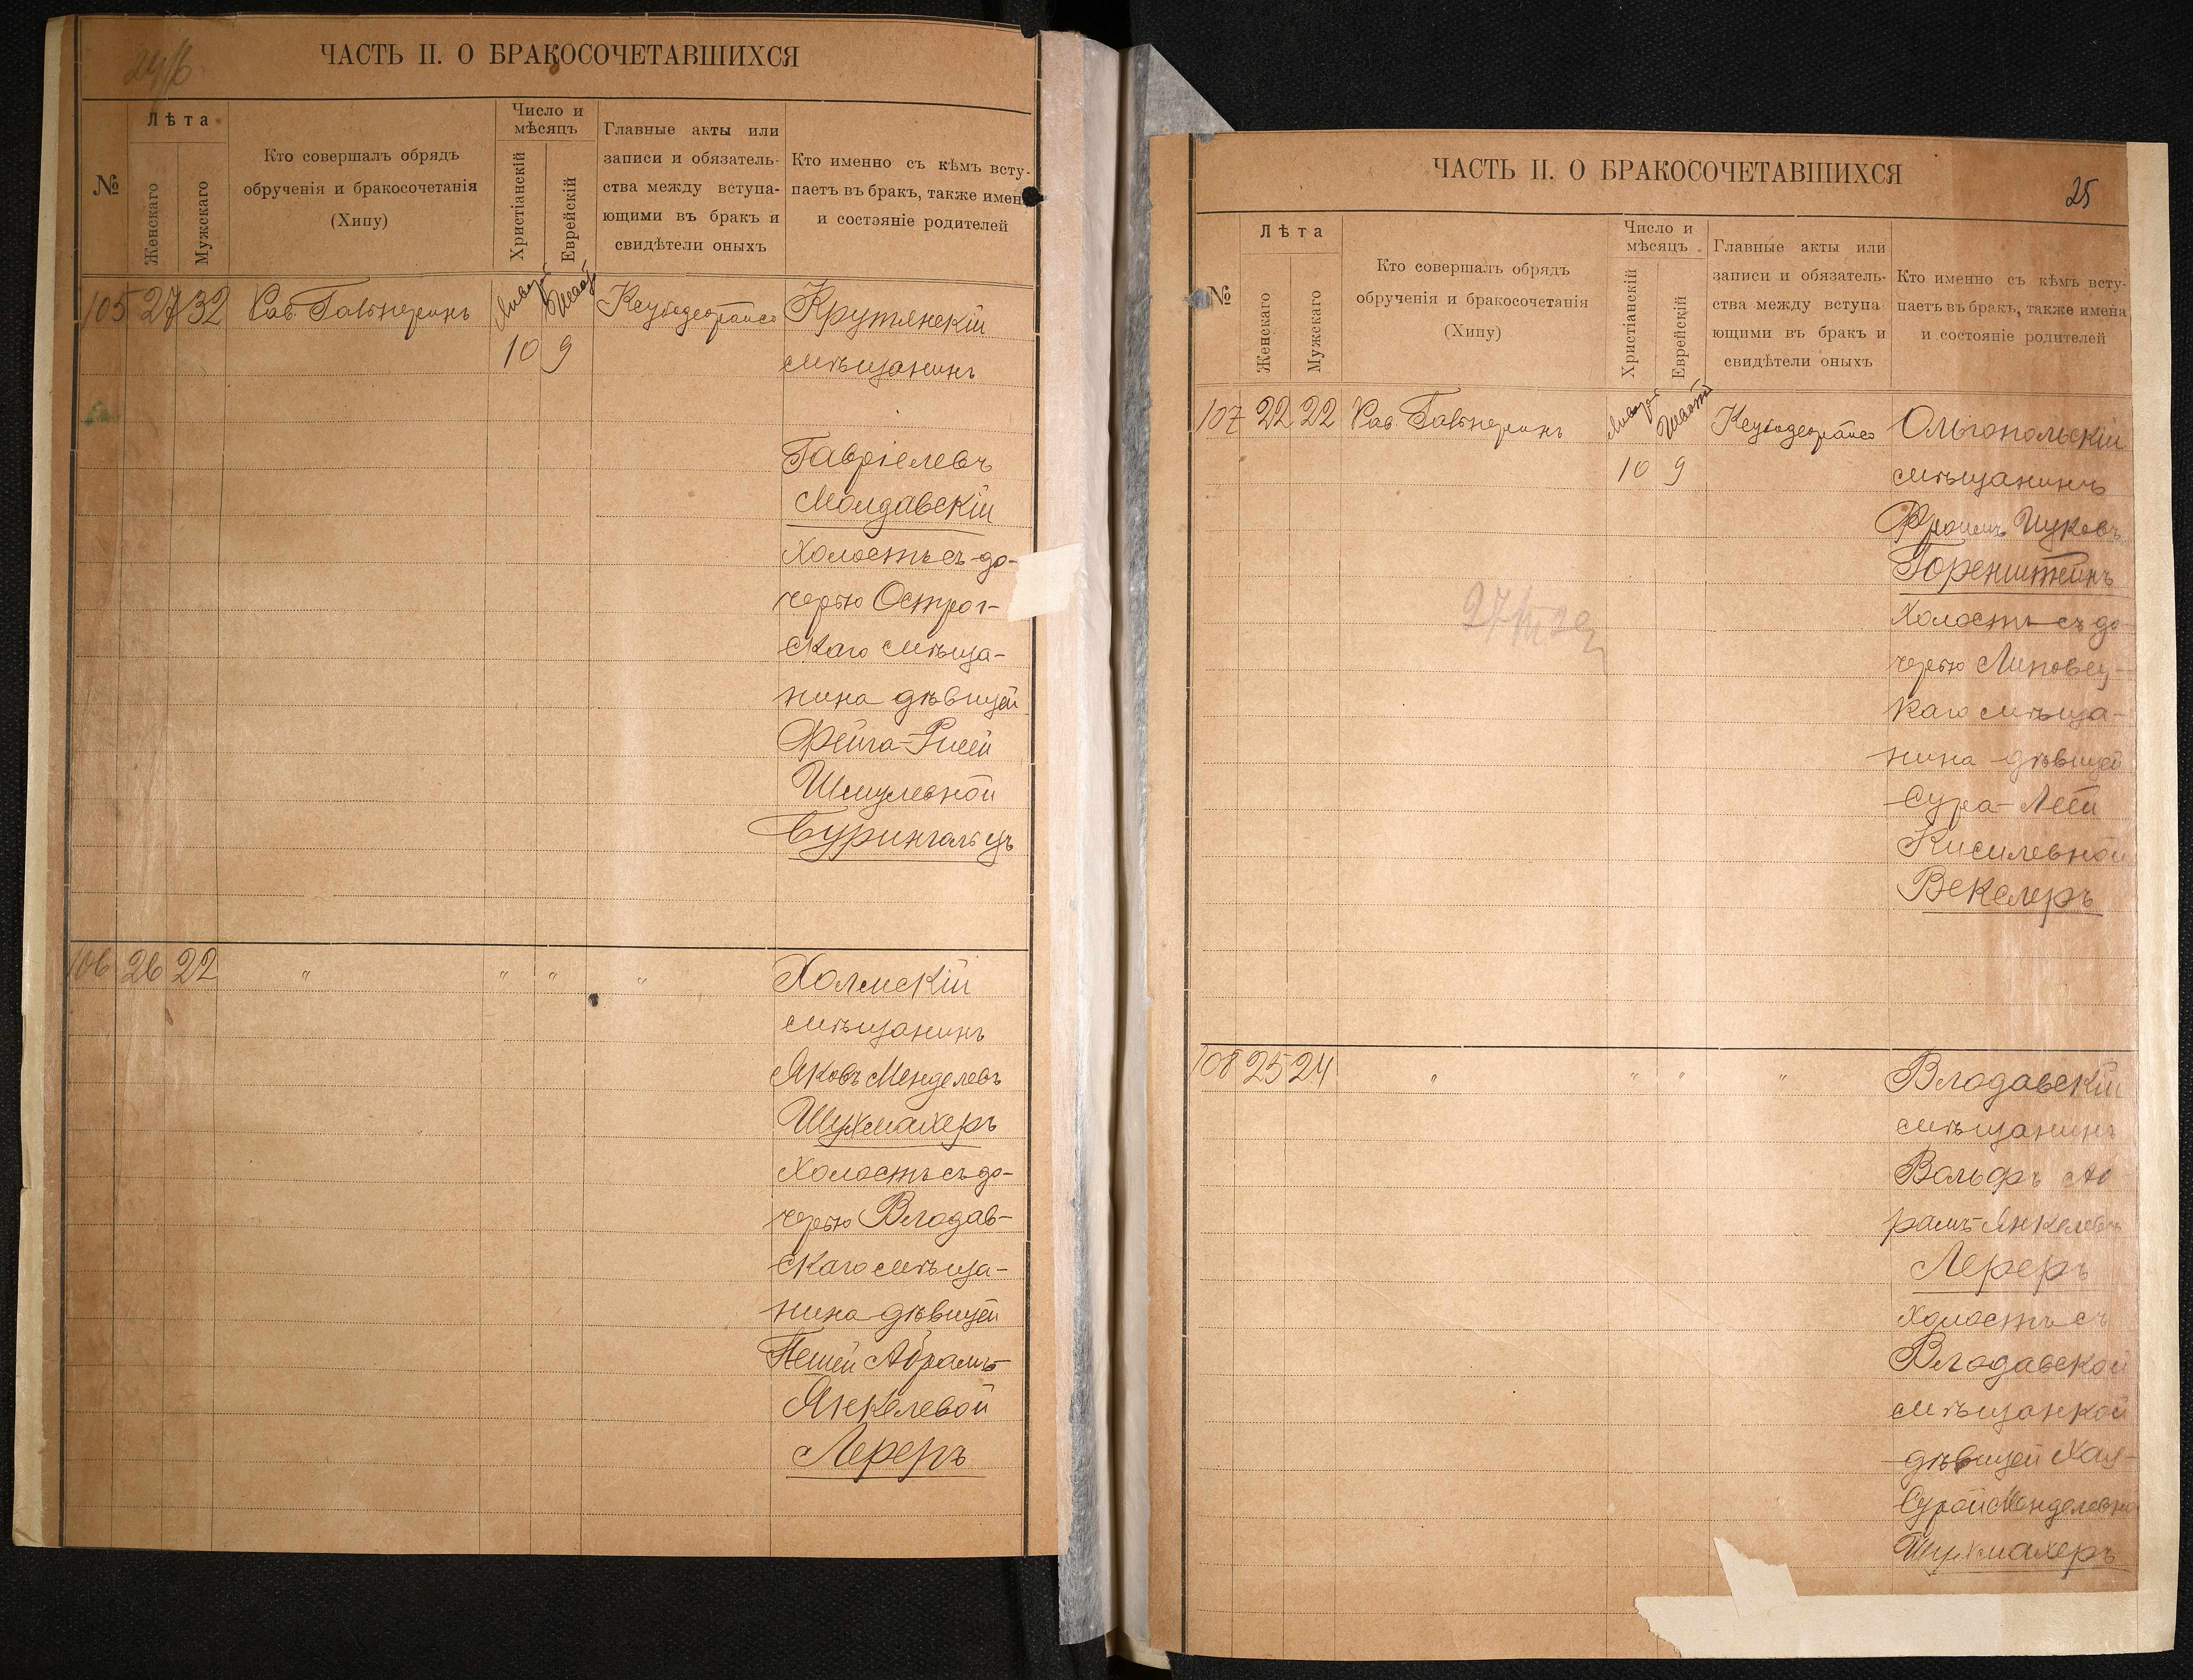 24об
ЧАСТЬ II. О БРАКОСОЧЕТАВШИХСЯ
№
Лѣта
Женскаго
Мужскаго
Кто совершалъ обрядъ
обрученія и бракосочетанія
(Хипу)
Число и
мѣсяцъ
Христіанскій
Еврейскій
Главные акты или
записи и обязатель-
ства между вступа-
ющими въ бракъ и
свидѣтели оныхъ
Кто именно съ кѣмъ всту-
паетъ въ бракъ, также имена
и состояніе родителей
105 27 32 Рав. Гальперинъ
Январ
Шват
10 9
Крутянскій
мѣщанинъ
Гавріелевъ
Молдавскій
холостъ съ до-
черью Острог-
скаго мѣща-
нина дѣвицей
Фейга-
Шмулевной
106 26 22 " " " "
Холмскій
мѣщанинъ
Яковъ Менделевъ
Шухмахеръ
Холостъ съ до-
черью Влодав-
скаго мѣща-
нина дѣвицей
Пешей Абрамъ-
Янкелевой
Лереръ
ЧАСТЬ II. О БРАКОСОЧЕТАВШИХСЯ
25
№
Лѣта
Женскаго
Мужскаго
Кто совершалъ обрядъ
обрученія и бракосочетанія
(Хипу)
Число и
мѣсяцъ
Христіанскій
Еврейскій
Главные акты или
записи и обязатель-
ства между вступа
ющими въ бракъ и
свидѣтели оныхъ
Кто именно съ кѣмъ всту-
паетъ въ бракъ, также имена
и состояніе родителей
107 22 22 Рав. Гальперинъ
Январ
Шват
10 9
Ольгопольскій
мѣщанинъ
Фроимъ Ицковъ
Горенштейнъ
Холостъ съ до-
черью Липовец-
каго мѣща-
нина дѣвицей
Сура-Леей
Кисилевной
Векслеръ
108 25 24 " " " "
Влодавскій
мѣщанинъ
Вольфъ Аб
рамъ-Янкелевъ
Лереръ
холостъ съ
Влодавской
мѣщанкой
дѣвицей Хая-
Сурой Менделевно
Шухмахеръ